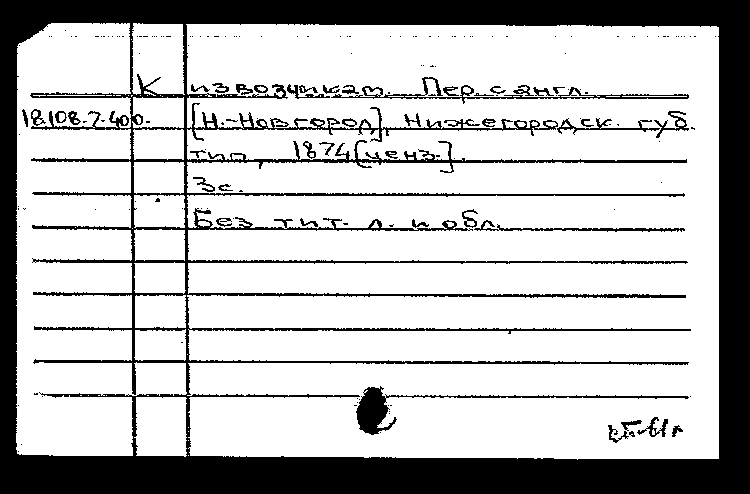 К извозчикам. Пер. с англ.
18.108.7.400. [Н.-Новгород], Нижегородск. губ.
тип, 1874 [ценз.].
3с.
Без тит. л. и обл.